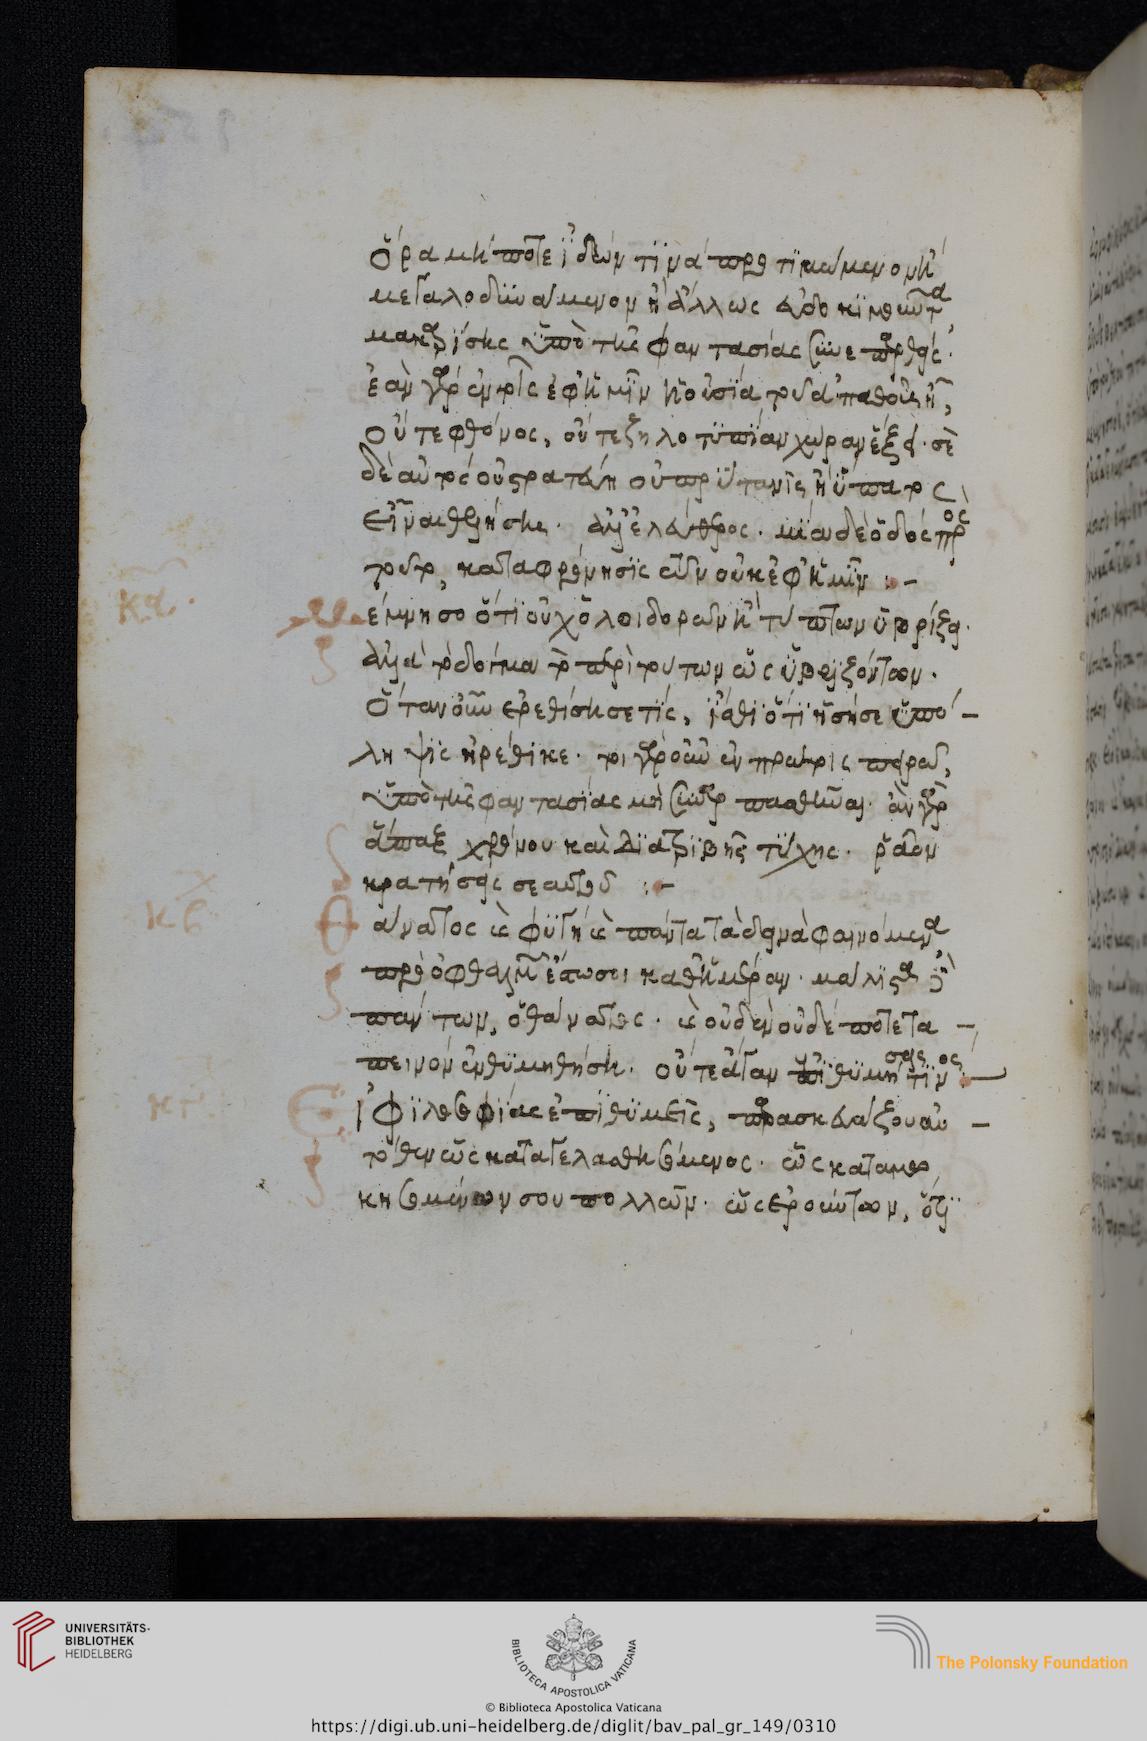 ὅρα μήποτε ἰδών τινα προτιμώμενον ἢ
μεγαλοδυνάμενον ἢ ἄλλως εὐδοκιμοῦντα
μακαρίσης ὑπὸ τῆς φαντασίας συναρπασθείς.
ἐὰν γὰρ ἐν τοῖς ἐφ' ἡμῖν ἡ οὐσία τοῦ ἀγαθοῦ ᾖ,
οὔτε φθόνος, οὔτε ζηλοτυπία χώραν ἕξει. σὺ
δὲ αὐτὸς οὐ στρατηγὸς οὐ πρύτανις ἢ ὕπατος
εἶναι θελήσης. ἀλλ' ἐλεύθερος. μία δὲ ὁδὸς πρὸς
τοῦτο, καταφρόνησις τῶν οὐκ ἐφ' ἡμῖν :-
κα.
μέμνησο ὅτι οὐχ ὁ λοιδορῶν ἢ τύπτων ὑβρίζει.
ἀλλὰ τὸ δόγμα τὸ περὶ τούτων ὡς ὑβριζόντων.
ὅταν οὖν ἐρεθίση σέ τις, ἴσθι ὅτι ἡ σή σε ὑπό-
ληψις ἠρέθικε. τοιγαροῦν ἐν πρώτοις πειρῶ,
ὑπὸ τῆς φαντασίας μὴ συναρπασθῆναι. ἂν γὰρ
ἅπαξ χρόνου καὶ διατριβῆς τύχης. ῥᾷον
κρατήσεις σεαυτοῦ :-
κβ
Θάνατος καὶ φυγὴ καὶ πάντα τὰ δεινὰ φαινόμενα
πρὸ ὀφθαλμῶν ἔστωσοι καθ' ἡμέραν. μάλιστα δὲ
πάντων, ὁ θάνατος. καὶ οὐδὲν οὐδέποτε τα-
πεινὸν ἐνθυμηθήση. οὔτε ἄγαν ἐπιθυμήσεις τινος :-
κγ.
Εἰ φιλοσοφίας ἐπιθυμεῖς, παρασκευάζου αὐ-
τόθεν ὡς καταγελασθησόμενος. ὡς καταμω
κησομένων σου πολλῶν. ὡς ἐρούντων, ὅτι
UNIVERSITÄTS-
BIBLIOTHEK
HEIDELBERG
BIBLIOTECA APOSTOLICA VATICANA
The Polonsky Foundation
© Biblioteca Apostolica Vaticana
https://digi.ub.uni-heidelberg.de/diglit/bav_pal_gr_149/0310